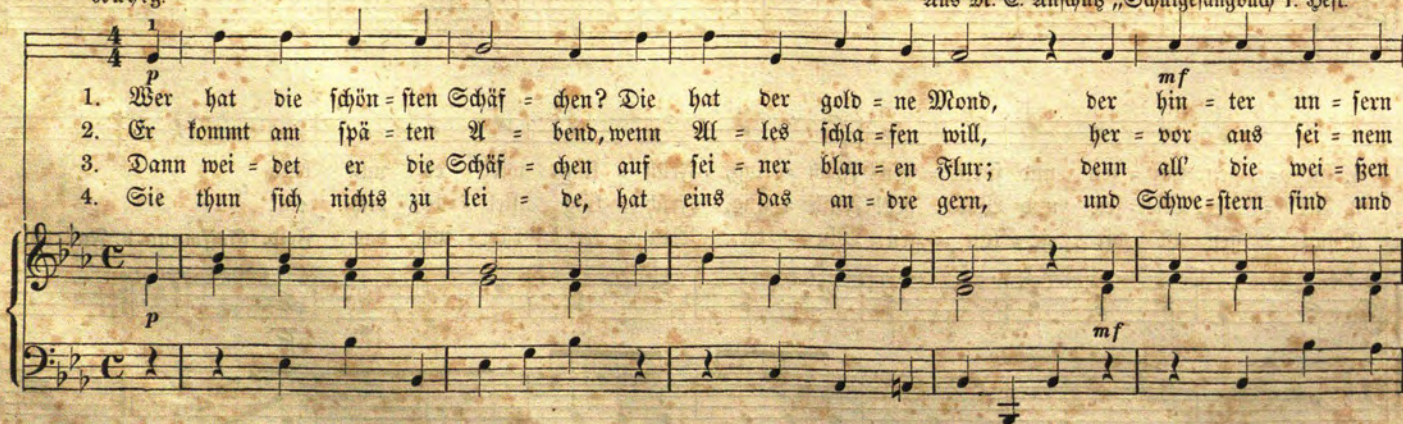 Aus M. E. Anschütz „Schulgesangbuch" 1. Heft.
4 1
4
p mf
1. Wer hat die schön = sten Schäf = chen? Die hat der gold = ne Mond, der hin = ter un = sern
2. Er kommt am spä = ten A = bend, wenn Al = les schla = fen will, her = vor aus sei = nem
3. Dann wei = det er die Schäf = chen auf sei = ner blau = en Flur; denn all' die wei = ßen
4. Sie thun sich nichts zu lei = de, hat eins das an = dre gern, und Schwe = stern sind und
p mf